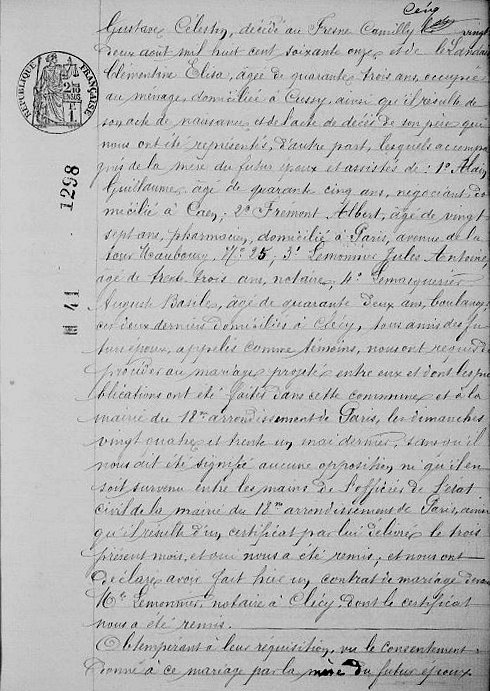 Cécy
Gustave Célestin, décédé au Fresne Camilly le vingt
deux aout mil huit cent soixante onze et de
Clémentine Elisa, agée de quarante trois ans, occupée
au ménage, domiciliée à Cussy, ainsi qu'il résulte de
son acte de naissance et de l'acte de décès de son père qui
nous ont été représentés, d'autre part, lesquels accompa
gnés de la mère du futur époux et assistés de : 1° Alain
Guillaume, age de quarante cinq ans, négociant, do
micilié à Caen, 2° Fremont Albert, agé de vingt
sept ans, pharmacien, domicilié à Paris, avenue de la
tour Maubourg, N° 25 ; 3° Lemonnier Jules Antoine,
agé de trente trois ans, notaire, 4° Lemasquerier
Auguste Basile, agé de quarante deux ans, boulanger,
ces deux derniers domiciliés à Clécy, tous amis des fu
turs époux, appelés comme témoins, nous ont requis de
procéder au mariage projeté entre eux et dont les pu
blications ont été faites dans cette commune et à la
mairie du 18me arrondissement de Paris, les dimanches
vingt quatre et trente un mai dernier, sans qu'il
nous ait été signifié aucune opposition ni qu'il en
soit survenu entre les mains de l'officier de l'état
civil de la mairie du 18me arrondissement de Paris, ainsi
qu'il résulte d'un certificat par lui délivré le trois
présent mois, et qui nous a été remis, et nous ont
déclaré avoir fait un contrat de mariage devant
Me Lemonnier, notaire à Clécy dont le certificat
nous a été remis.
Obtemperant à leur requisition, vu le consentement
donné à ce mariage par la mère du futur époux
RÉPUBLIQUE FRANÇAISE
1298
41